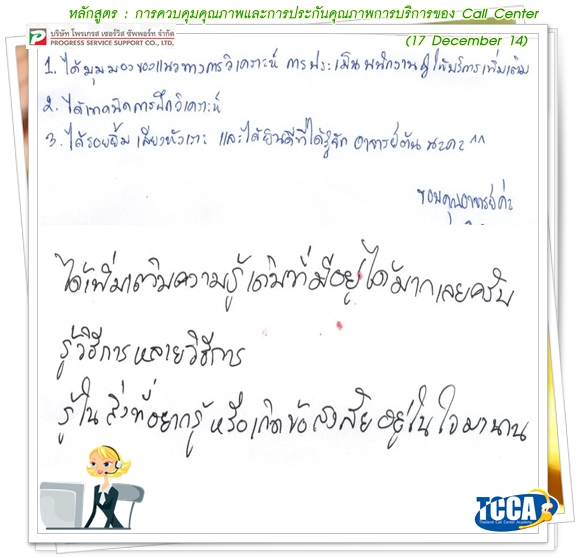 หลักสูตร : การควบคุมคุณภาพและการประกันคุณภาพการบริการของ Call Center
(17 December 14)
บริษัท โพรเกรส เซอร์วิส ซัพพอร์ท จำกัด
PROGRESS SERVICE SUPPORT CO., LTD.
1. ได้มุมมองของแนวทางการวิเคราะห์ การประเมินพนักงานผู้ให้บริการเพิ่มเติม
2. ได้เทคนิคการฝึกวิเคราะห์
3. ได้รอยยิ้ม เสียงหัวเราะ และได้ยินดีที่ได้รู้จัก อาจารย์ตั้น นะคะ ^^
ขอบคุณอาจารย์ค่ะ
ได้เพิ่มเติมความรู้เดิมที่มีอยู่ได้มากเลยครับ
รู้วิธีการหลายวิธีการ
รู้ในสิ่งที่อยากรู้ หรือเกิดข้อสงสัยอยู่ในใจมานาน
TCCA
Thailand Call Center Academy